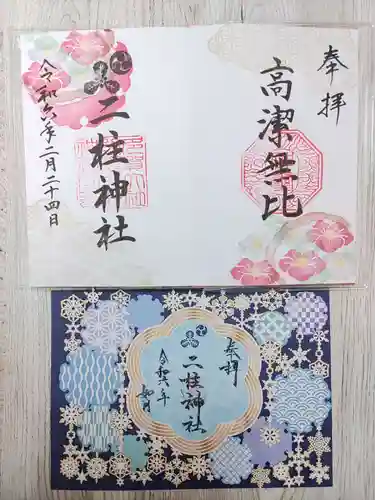 奉拝
高潔無比
二柱神社
令和六年二月二十四日
奉拝
二柱神社
令和六年